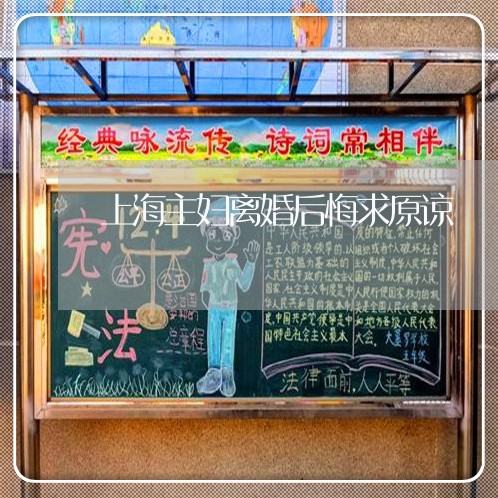 经典咏流传 诗词常相伴
上海主妇离婚后悔求原谅
宪法
12.4
公平 公正
总章程
中华人民共和国
是工人阶级领导的,以
工农联盟为基础的
人民民主专政的社会主义
国家。社会主义制度是中
华人民共和国的根本制
度。中国共产党领导是中
国特色社会主义最本
质的特征。禁止任何
组织或者个人破坏社会
主义制度。中华人民共和
国的一切权利属于人民。
人民行使国家权力的机
关是全国人民代表大会
和地方各级人民代表
大会。
五年级
法律面前,人人平等